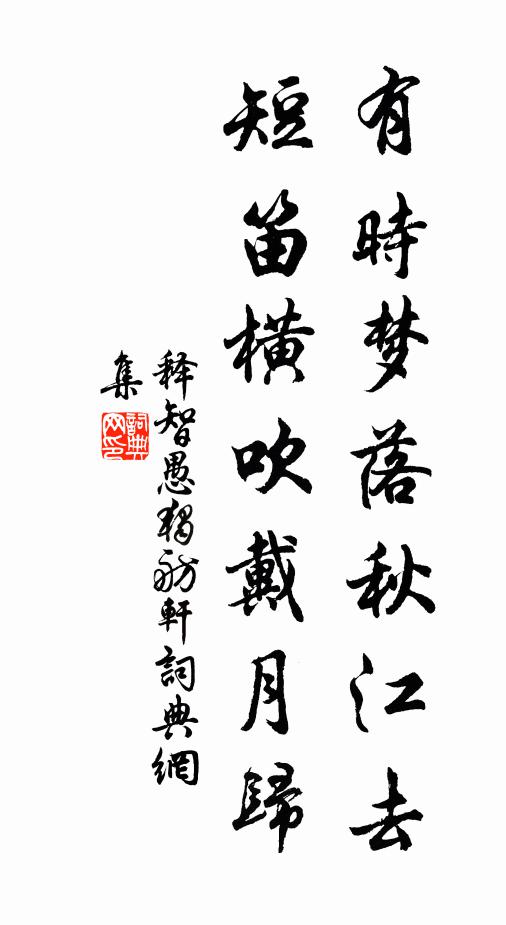 有時梦落秋江去
短笛橫吹戴月歸
释智愚獨舫軒詞典網
集
詞典
网印